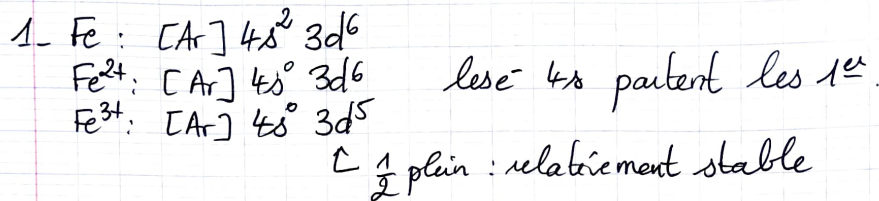 1- Fe : [Ar] 4s² 3d⁶
Fe²⁺: [Ar] 4s⁰ 3d⁶ les e⁻ 4s partent les 1er.
Fe³⁺: [Ar] 4s⁰ 3d⁵
½ plein : relativement stable